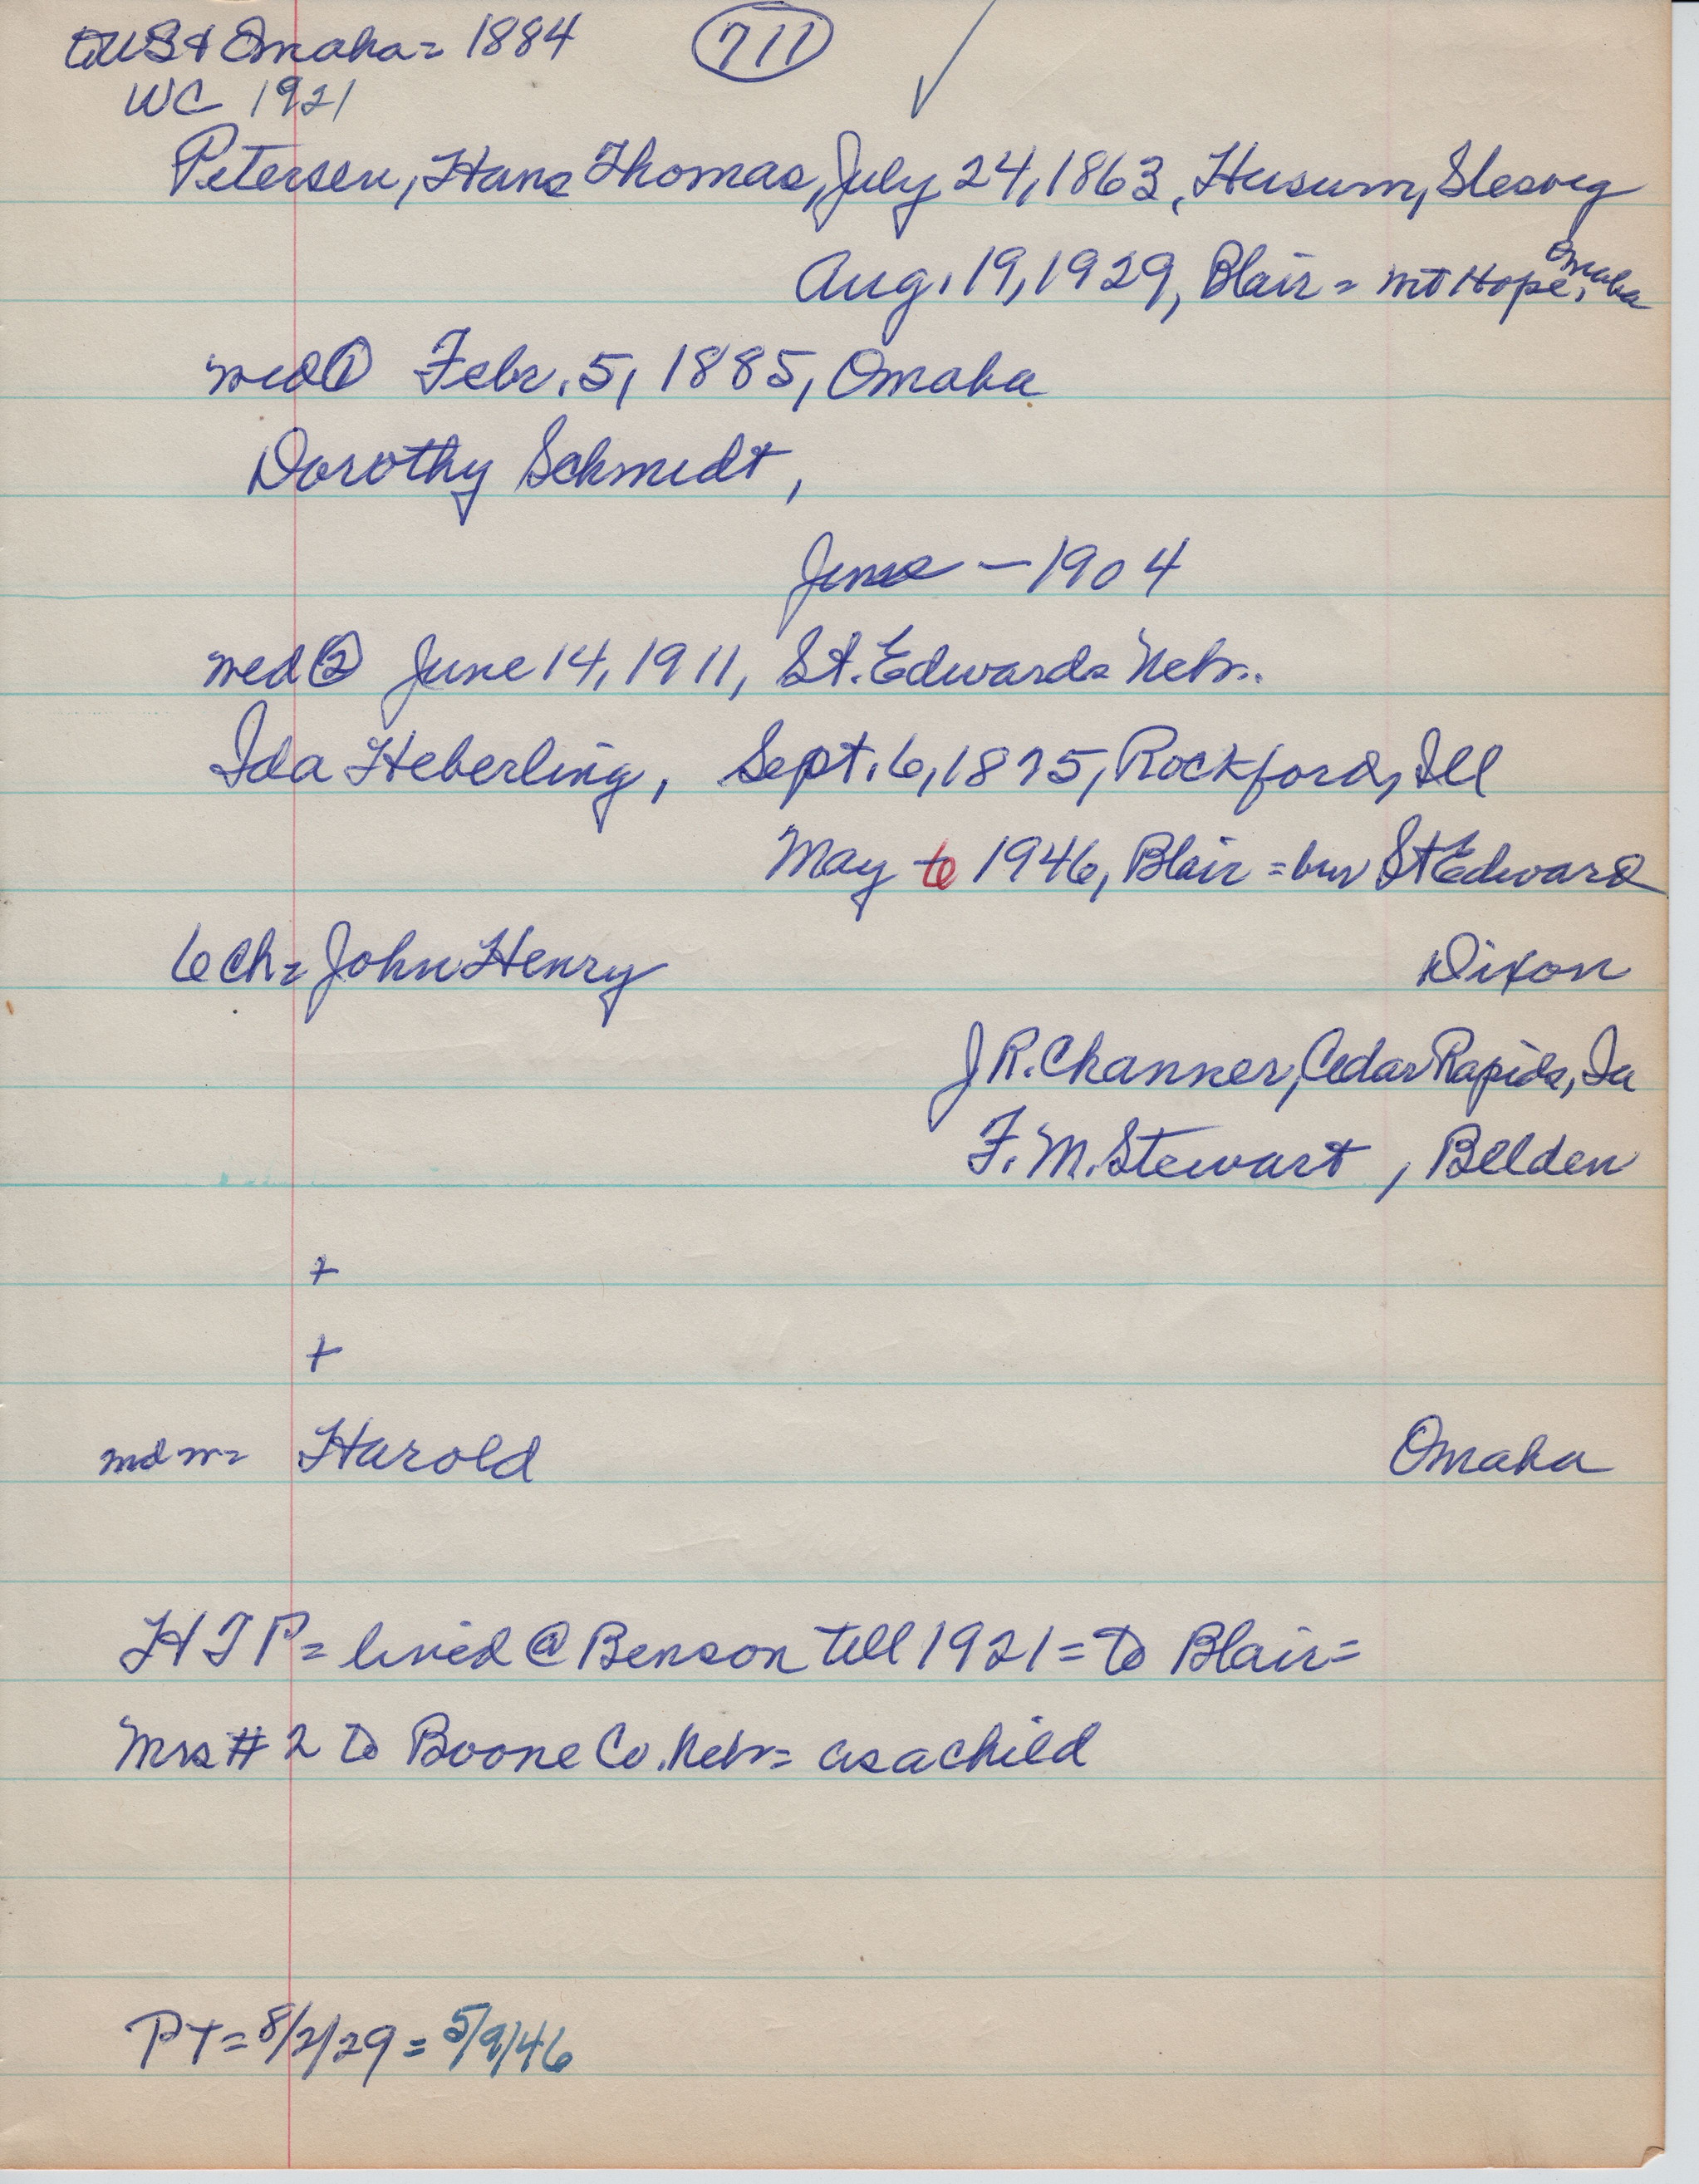 to US & Omaha = 1884 711 ✓
WC 1921
Petersen, Hans Thomas, July 24, 1863, Husum, Slesvig
Aug. 19, 1929, Blair = Mt Hope, Omaha
md ① Febr. 5, 1885, Omaha
Dorothy Schmidt,
June - 1904
md ② June 14, 1911, St. Edwards Nebr.
Ida Heberling, Sept. 6, 1875, Rockford, Ill
May 6 1946, Blair = bur St Edward
6 ch = John Henry Dixon
J R. Channer, Cedar Rapids, Ia
F. M. Stewart, Belden
+
+
Harold Omaha
H T P = lived @ Benson till 1921 = to Blair =
Mrs # 2 to Boone Co. Nebr = as a child
PT = 8/2/29 = 5/9/46